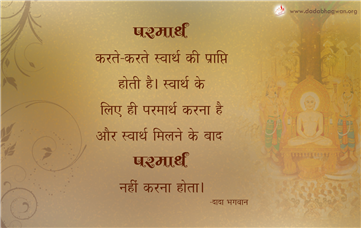 www.dadabhagwan.org
परमार्थ
करते-करते स्वार्थ की प्राप्ति
होती है। स्वार्थ के
लिए ही परमार्थ करना है
और स्वार्थ मिलने के बाद
परमार्थ
नहीं करना होता।
-दादा भगवान